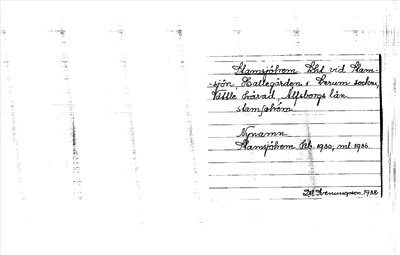 Stamsjöhem, lht vid Stam-
sjön, Hallegården i Lerum socken,
Vättle härad, Älfsborgs län.
stamʃøhém
Nynamn.
Stamsjöhem, feb. 1930, ml 1936.
1938